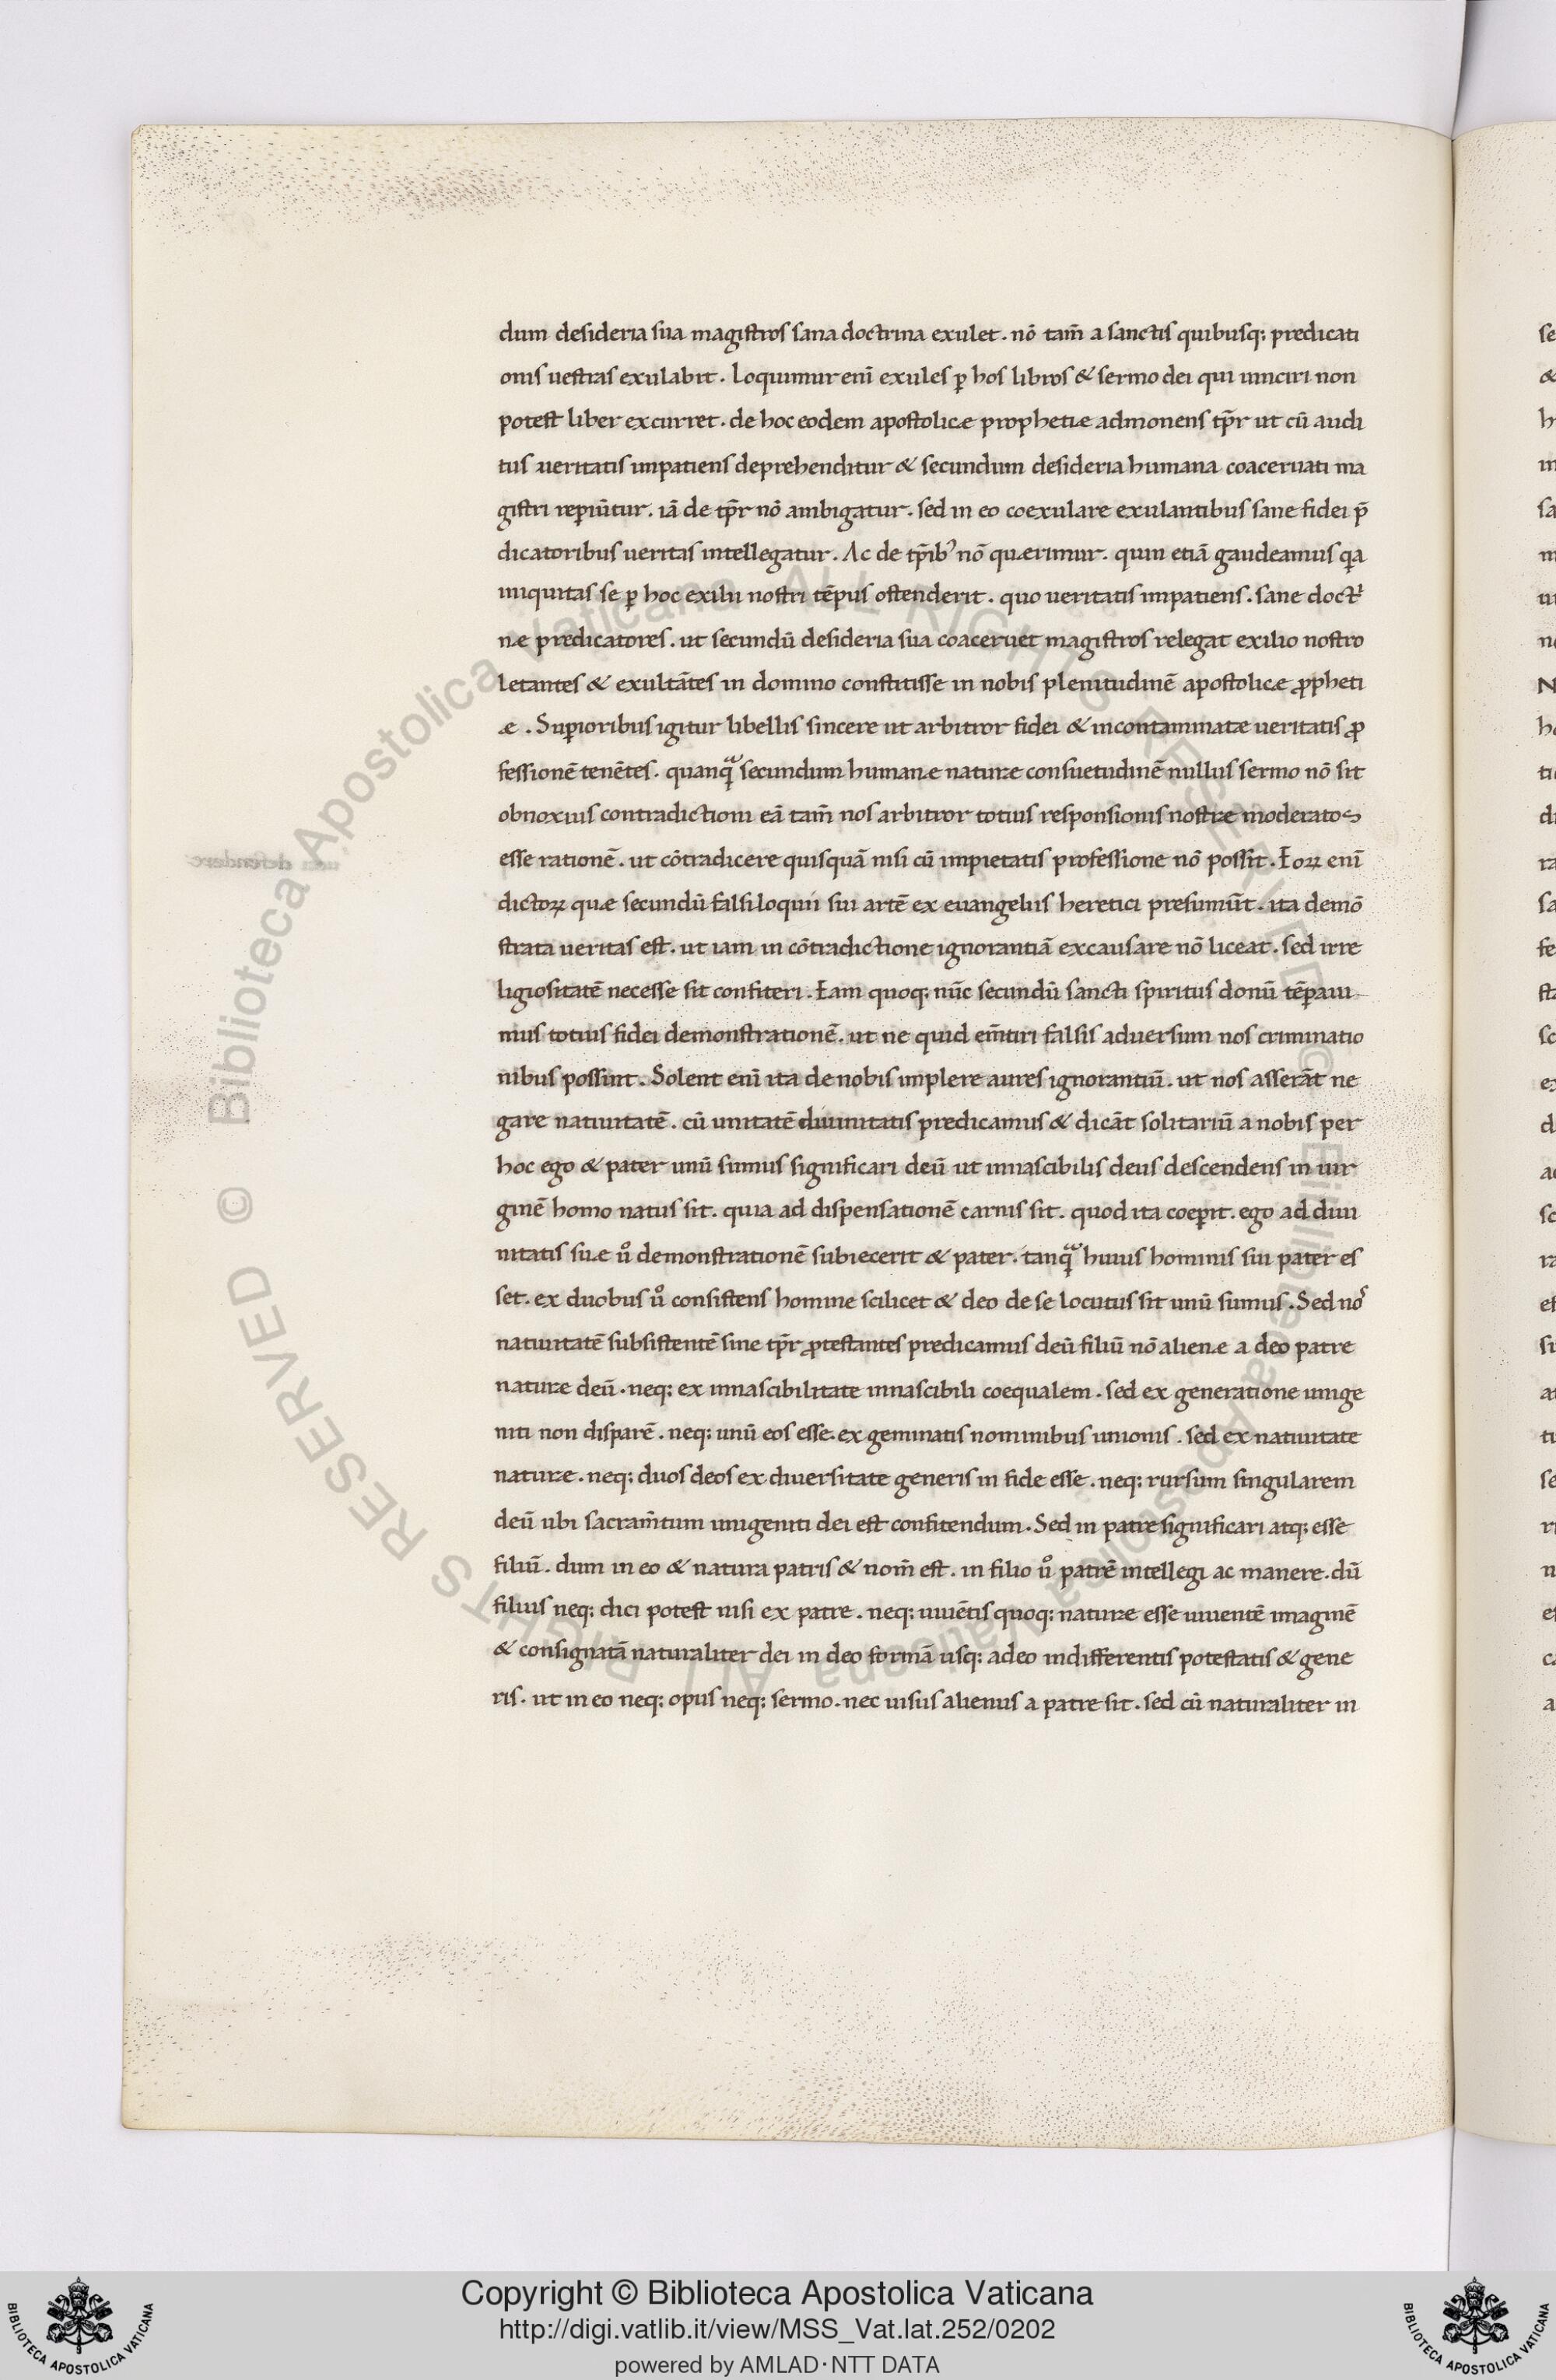 dum desideria sua magistros sana doctrina exulet. nō tam̄ a sanctis quibusq; predicati
onis uestras exulabit. Loquimur enī exules ꝑ hos libros & sermo dei qui uinciri non
potest liber excurret. de hoc eodem apostolicæ prophetiæ admonens tp̄r ut cū audi
tus ueritatis inpatiens deprehenditur & secundum desideria humana coaceruati ma
gistri reꝑiūtur. iā de tp̄r nō ambigatur. sed in eo coexulare exulantibus sane fidei p̄
dicatoribus ueritas intellegatur. Ac de tp̄ib⁹ nō quærimur. quin etiā gaudeamus qa
iniquitas se ꝑ hoc exilii nostri tēpus ostenderit. quo ueritatis impatiens. sane doctⁱ
næ predicatores. ut secundū desideria sua coaceruet magistros relegat exilio nostro
letantes & exultātes in domino constitisse in nobis plenitudinē apostolicæ ꝓpheti
æ. Suꝑioribus igitur libellis sincere ut arbitror fidei & incontaminatæ ueritatis ꝓ
fessionē tenētes. quanqᷓ secundum humanæ naturæ consuetudinē nullus sermo nō sit
obnoxius contradictioni eā tam̄ nos arbitror totius responsionis nostræ moderatos
esse rationē. ut cōtradicere quisquā nisi cū impietatis professione nō possit. Eoꝝ enī
dictoꝝ quæ secundū falsiloquii sui artē ex euangeliis heretici presumūt. ita demō
strata ueritas est. ut iam in cōtradictione ignorantiā excausare nō liceat. sed irre
ligiositatē necesse sit confiteri. Eam quoq; nūc secundū sancti spiritus donū tēꝑaui
mus totius fidei demonstrationē. ut ne quid em̄tiri falsis aduersum nos criminatio
nibus possint. Solent enī ita de nobis implere aures ignorantiū. ut nos asserāt ne
gare natiuitatē. cū unitatē diuinitatis predicamus & dicāt solitariū a nobis per
hoc ego & pater unū sumus significari deū ut innascibilis deus descendens in uir
ginē homo natus sit. quia ad dispensationē carnis sit. quod ita coeꝑit. ego ad diui
nitatis suæ uº demonstrationē subiecerit & pater. tanqᷓ huius hominis sui pater es
set. ex duobus uº consistens homine scilicet & deo de se locutus sit unū sumus. Sed noˢ
natiuitatē subsistentē sine tp̄r ꝓtestantes predicamus deū filiū nō alienæ a deo patre
naturæ deū. neq; ex innascibilitate innascibili coequalem. sed ex generatione unige
niti non disparē. neq; unū eos esse. ex geminatis nominibus unionis. sed ex natiuitate
naturæ. neq; duos deos ex diuersitate generis in fide esse. neq; rursum singularem
deū ubi sacram̄tum unigeniti dei est confitendum. Sed in patre significari atq; esse
filiū. dum in eo & natura patris & nom̄ est. in filio uº patrē intellegi ac manere. dū
filius neq; dici potest nisi ex patre. neq; uiuētis quoq; naturæ esse uiuentē imaginē
& consignatā naturaliter dei in deo formā usq; adeo indifferentis potestatis & gene
ris. ut in eo neq; opus neq; sermo. nec uisus alienus a patre sit. sed cū naturaliter in
© Biblioteca Apostolica Vaticana ALL RIGHTS RESERVED
© Biblioteca Apostolica Vaticana ALL RIGHTS RESERVED
Copyright © Biblioteca Apostolica Vaticana
http://digi.vatlib.it/view/MSS_Vat.lat.252/0202
powered by AMLAD·NTT DATA
BIBLIOTECA APOSTOLICA VATICANA
BIBLIOTECA APOSTOLICA VATICANA